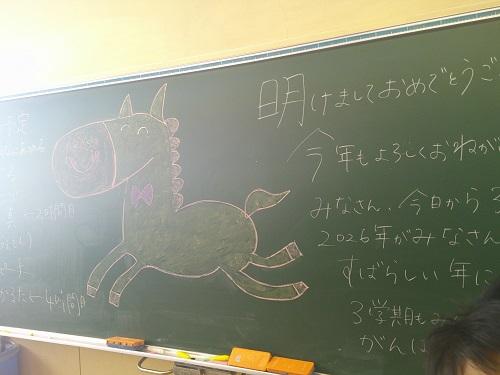 予定
2時間目
かるた 4時間目
明けましておめでとうご
今年もよろしくおねが
みなさん、今日から3
2026年がみなさん
すばらしい年に
3学期もみ
がんば